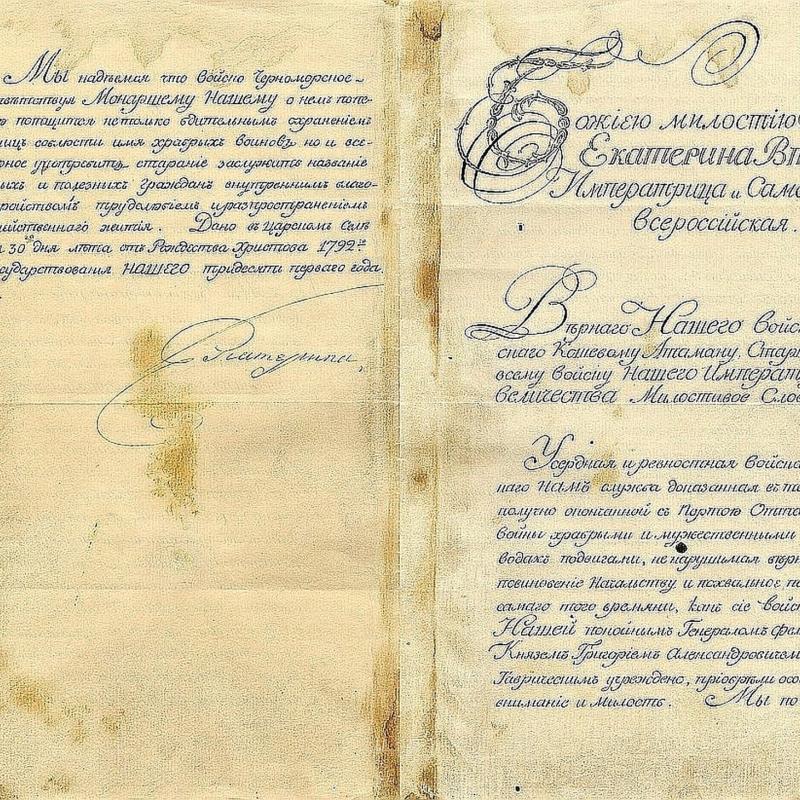 Мы надѣемся что Войско Черноморское
вѣтствуя Монаршему Нашему о немъ попе-
потщится не только бдительнымъ охраненіемъ
ницъ соблюсти имя храбрыхъ воиновъ но и все-
рное употребить стараніе заслужить названіе
ыхъ и полезныхъ гражданъ внутреннимъ благо-
ройствомъ трудолюбіемъ и распространеніемъ
ейственнаго житія. Дано въ Царскомъ Селѣ
30го дня лѣта отъ Рождества Христова 1792го
осударствованія НАШЕГО тридесять перваго года.
Екатерина
Божіею милостію
Екатерина Вт
Императрица и Само
Всероссійская.
Вѣрнаго Нашего Войс
снаго Кошевому Атаману, Стар
всему Войску Нашего Императ
величества Милостивое Слов
Усердная и ревностная Войска
наго НАМЪ служба доказанная въ те
получно оконченной съ Портою Отто
войны храбрыми и мужественными
водахъ подвигами, не нарушимая вѣрн
повиновеніе Начальству и похвальное по
самаго того времяни, какъ сіе войс
Нашей покойнымъ Генераломъ Фел
Княземъ Григоріемъ Александровичемъ
Таврическимъ учреждено, пріобрѣли осо
вниманіе и Милость. Мы по